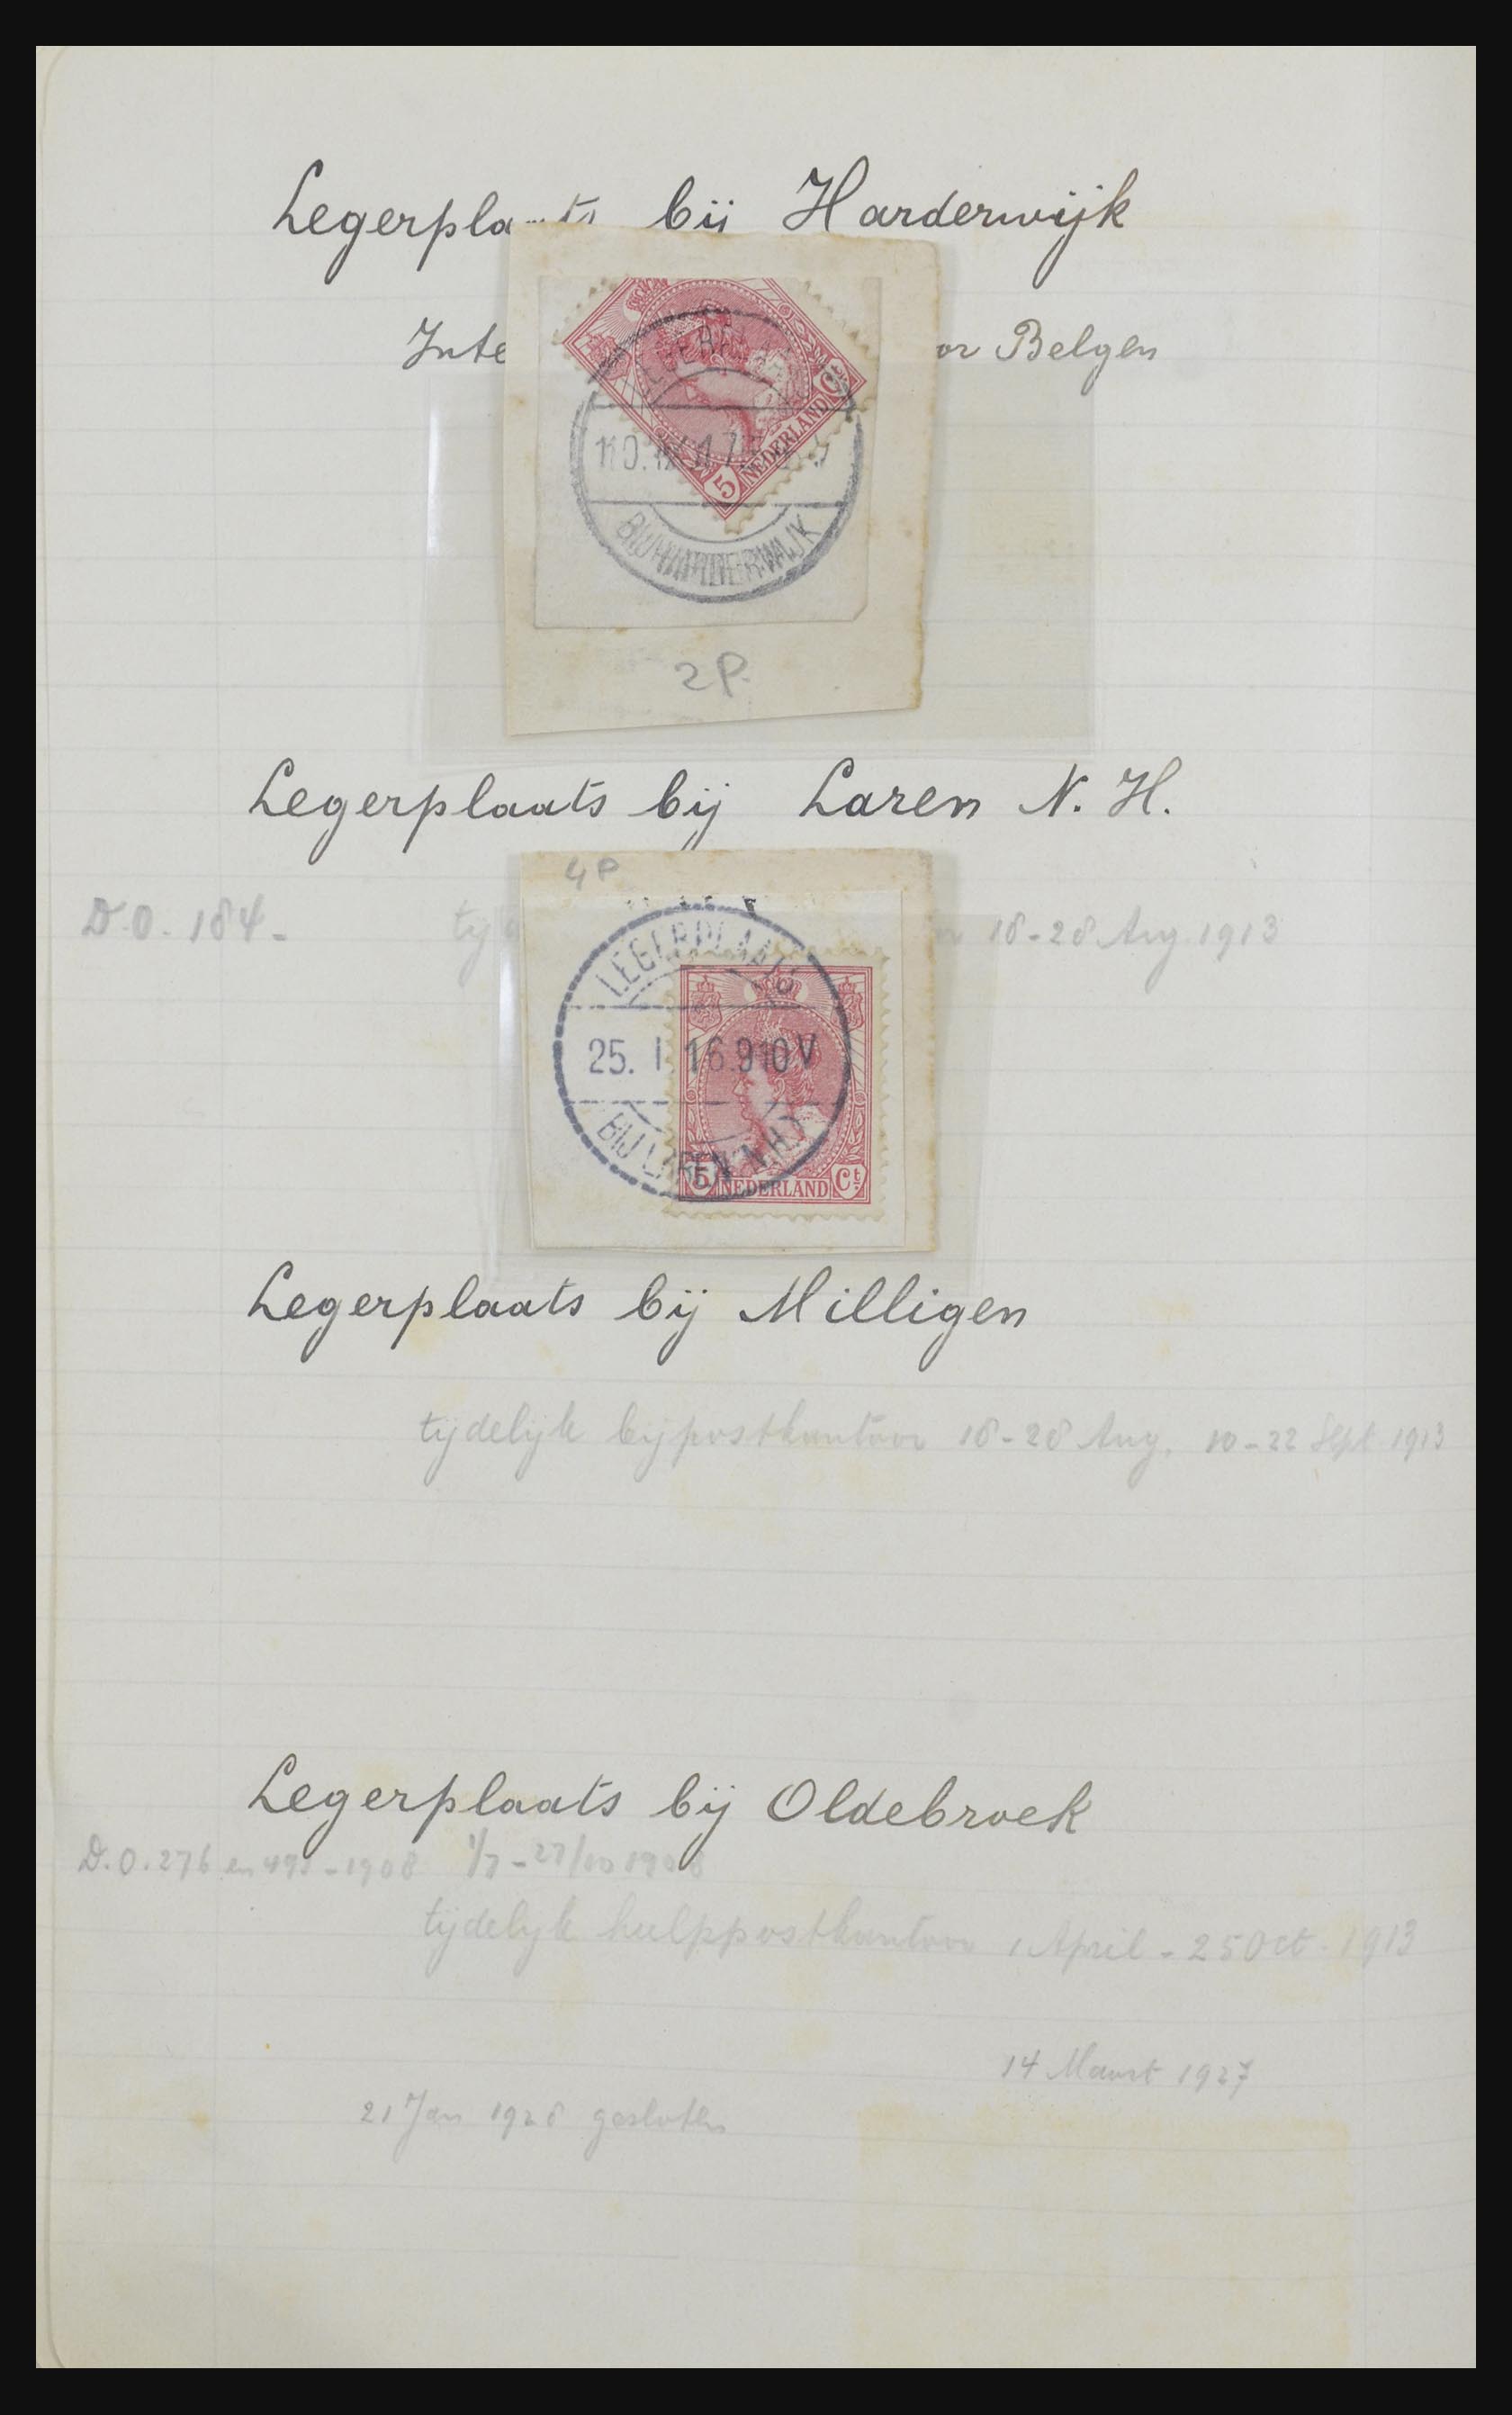 Legerplaats bij Harderwijk
Inte or Belgen
NEDERLAND
5 Ct
BIJ HARDERWIJK
2P.
Legerplaats bij Laren N.H.
4P
D.O. 184- tij 18-28 Aug. 1913
LEGERPLAATS
25. I 16.9 10V
BIJ LAREN (N.H.)
5 NEDERLAND Ct
Legerplaats bij Milligen
tijdelijk bijpostkantoor 18-28 Aug. 10-22 Sept 1913
Legerplaats bij Oldebroek
D.O. 276 en -1908
tijdelijk hulppostkantoor 1 April - 25 Oct. 1913
14 Maart 1927
21 Jan 1928 gesloten